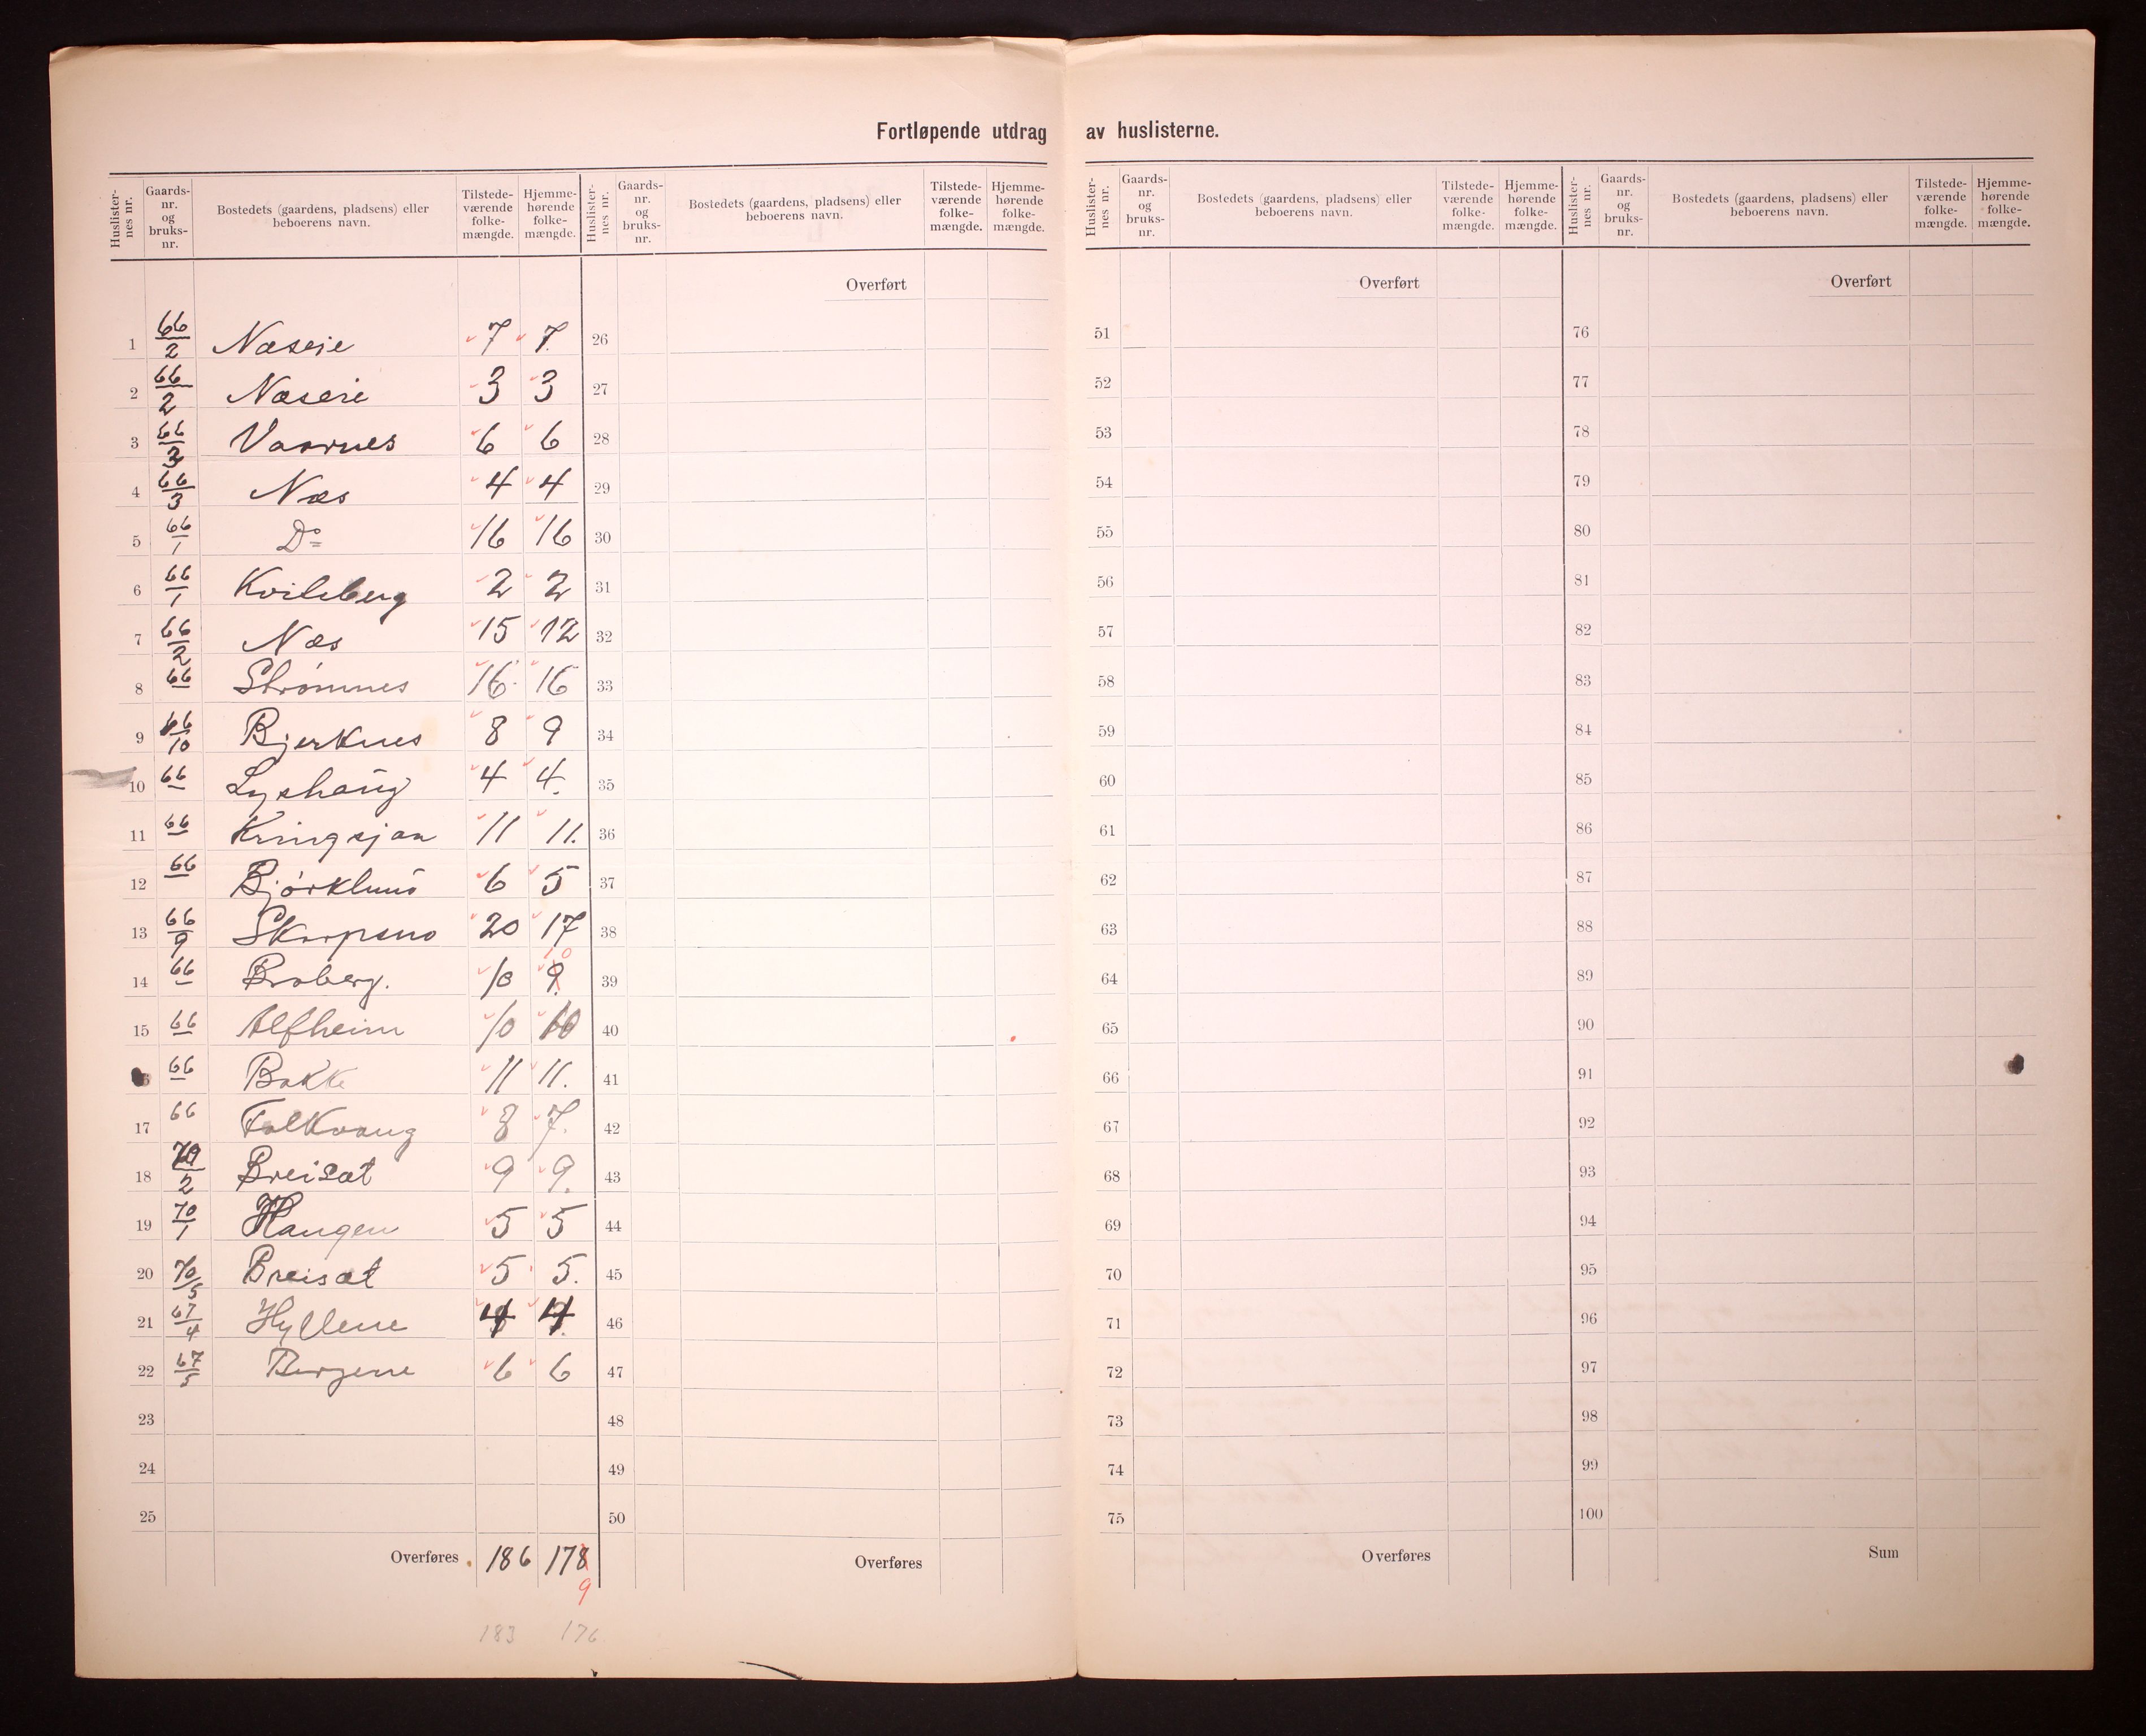 Fortløpende utdrag av huslisterne.
Huslister-nes nr. Gaards-nr. og bruks-nr. Bostedets (gaardens, pladsens) eller beboerens navn. Tilstede-værende folke-mængde. Hjemme-hørende folke-mængde.
1 66/2 Næseie 7 7.
2 66/2 Næseie 3 3
3 66/3 Vaarnes 6 6
4 66/3 Næs 4 4
5 66/1 Do 16 16
6 66/1 Kvileberg 2 2
7 66/2 Næs 15 12
8 66 Strømnes 16 16
9 66/10 Bjerknes 8 9
10 66 Lyshaug 4 4.
11 66 Kringsjaa 11 11.
12 66 Bjørklund 6 5
13 66/9 Skarpsno 20 17
14 66 Braberg. 10 9. 10
15 66 Alfheim 10 10
66 Bakke 11 11.
17 66 Folkvang 8 7.
18 70/2 Breisæt 9 9.
19 70/1 Haugen 5 5
20 70/5 Breisæt 5 5.
21 67/4 Hyllene 4 4
22 67/5 Bergene 6 6
23
24
25
Overføres 186 178
9
183 176
Huslister-nes nr. Gaards-nr. og bruks-nr. Bostedets (gaardens, pladsens) eller beboerens navn. Tilstede-værende folke-mængde. Hjemme-hørende folke-mængde.
Overført
26
27
28
29
30
31
32
33
34
35
36
37
38
39
40
41
42
43
44
45
46
47
48
49
50
Overføres
Huslister-nes nr. Gaards-nr. og bruks-nr. Bostedets (gaardens, pladsens) eller beboerens navn. Tilstede-værende folke-mængde. Hjemme-hørende folke-mængde.
Overført
51
52
53
54
55
56
57
58
59
60
61
62
63
64
65
66
67
68
69
70
71
72
73
74
75
Overføres
Huslister-nes nr. Gaards-nr. og bruks-nr. Bostedets (gaardens, pladsens) eller beboerens navn. Tilstede-værende folke-mængde. Hjemme-hørende folke-mængde.
Overført
76
77
78
79
80
81
82
83
84
85
86
87
88
89
90
91
92
93
94
95
96
97
98
99
100
Sum